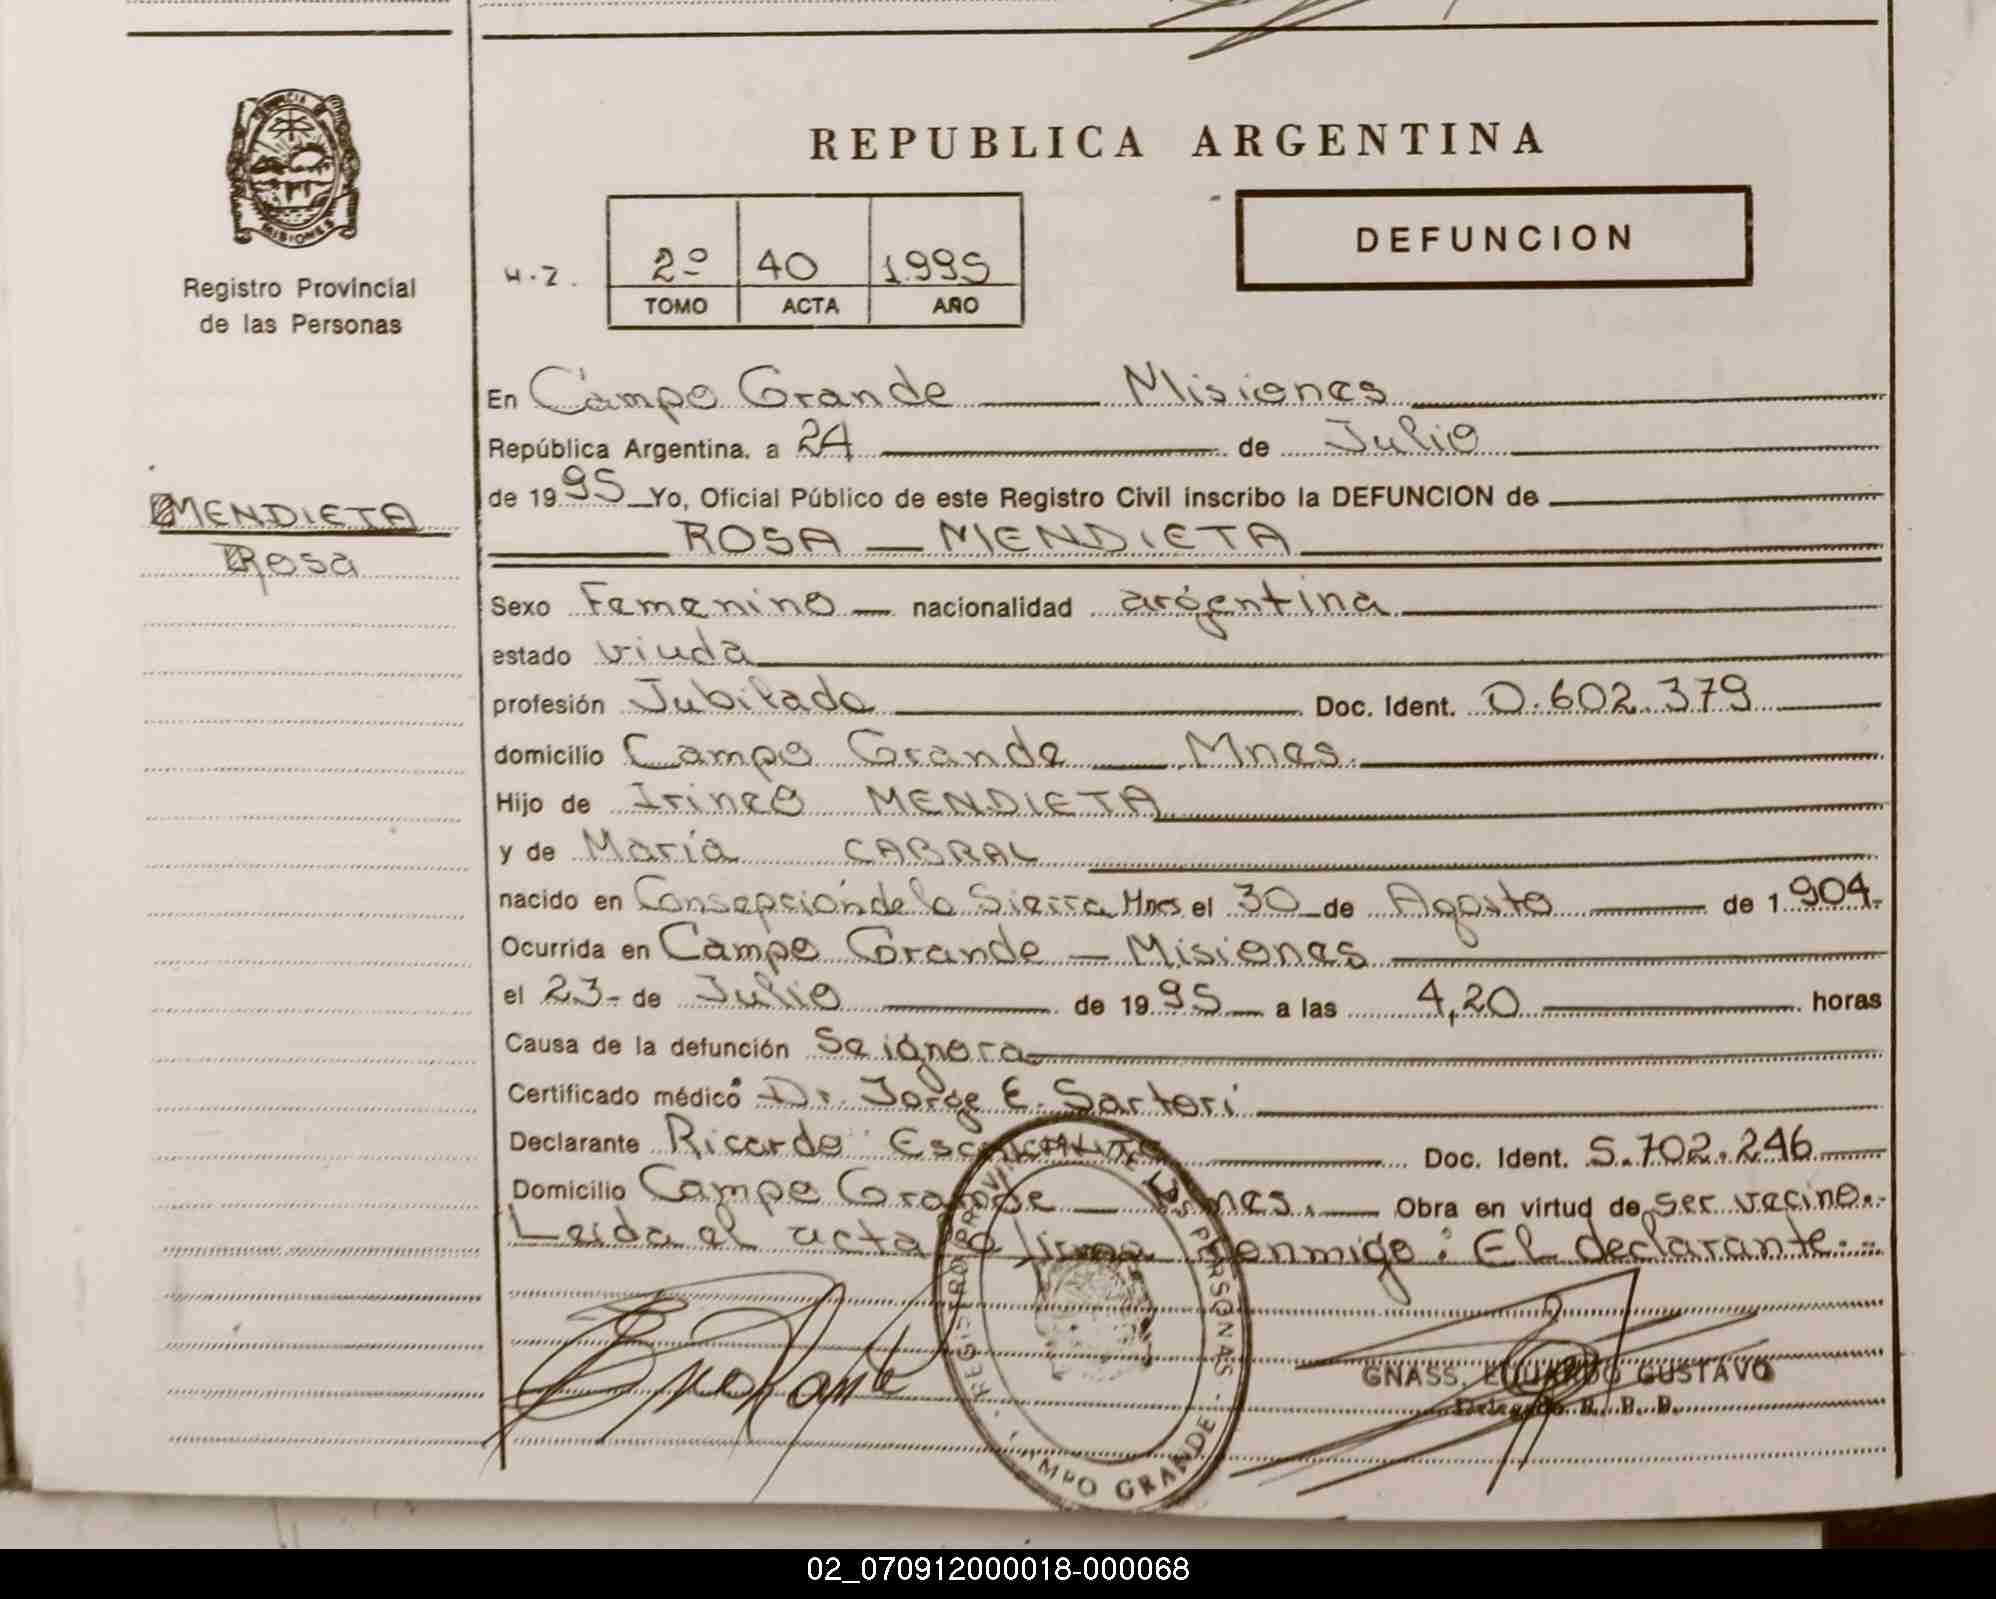 REPUBLICA ARGENTINA
PROVINCIA DE
MISIONES
Registro Provincial
de las Personas
DEFUNCION
H.Z. 2º 40 1995
TOMO ACTA AÑO
MENDIETA
Rosa
En Campo Grande Misiones
República Argentina. a 24 de Julio
de 1995 Yo, Oficial Público de este Registro Civil inscribo la DEFUNCION de
ROSA MENDIETA
Sexo Femenino nacionalidad argentina
estado viuda
profesión Jubilada Doc. Ident. 0.602.379
domicilio Campo Grande Mnes.
Hijo de Irineo MENDIETA
y de María CABRAL
nacido en Consepción de la Sierra Mnes el 30 de Agosto de 1904.
Ocurrida en Campo Grande — Misiones
el 23 de Julio de 1995 a las 4,20 horas
Causa de la defunción Se ignora
Certificado médico Dr. Jorge E. Sartori
Declarante Ricardo Doc. Ident. 5.702.246
Domicilio Campo Grande Mnes. Obra en virtud de ser vecino.
Leida el acta la firma conmigo: El declarante.
REGISTRO PROVINCIAL DE LAS PERSONAS - CAMPO GRANDE
GNASS, EDUARDO GUSTAVO
Delegado R. P. P.
02_070912000018-000068